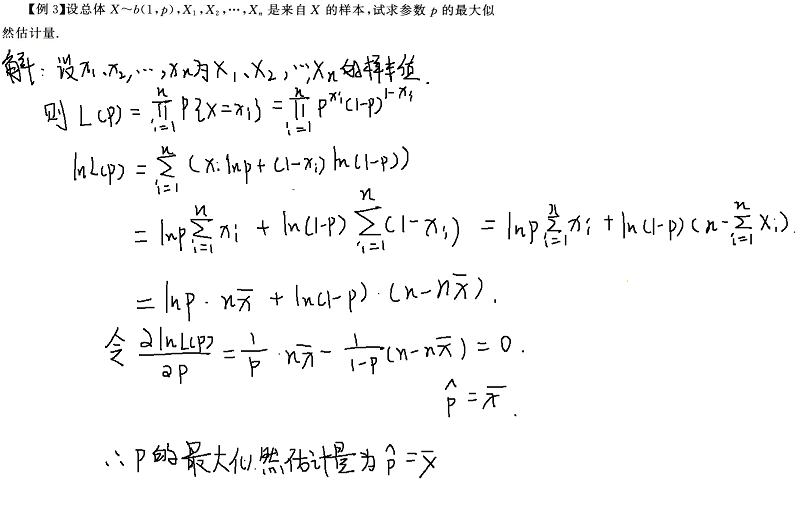 【例 3】设总体 X～b(1,p),X₁,X₂,…,Xₙ 是来自 X 的样本,试求参数 p 的最大似
然估计量.
解: 设x₁、x₂,…,xₙ为X₁、X₂,…,Xₙ的样本值.
则 L(p) = ∏ᵢ₌₁ⁿ P{X=xᵢ} = ∏ᵢ₌₁ⁿ p^{xᵢ}(1-p)^{1-xᵢ}
lnL(p) = ∑ᵢ₌₁ⁿ (xᵢ lnp + (1-xᵢ) ln(1-p))
= lnp ∑ᵢ₌₁ⁿ xᵢ + ln(1-p) ∑ᵢ₌₁ⁿ (1-xᵢ) = lnp ∑ᵢ₌₁ⁿ xᵢ + ln(1-p) (n-∑ᵢ₌₁ⁿ xᵢ).
= lnp · nx̄ + ln(1-p) · (n-nx̄).
令 ∂lnL(p)/∂p = 1/p · nx̄ - 1/(1-p) (n-nx̄) = 0.
p̂ = x̄.
∴ P的最大似然估计量为 p̂ = X̄